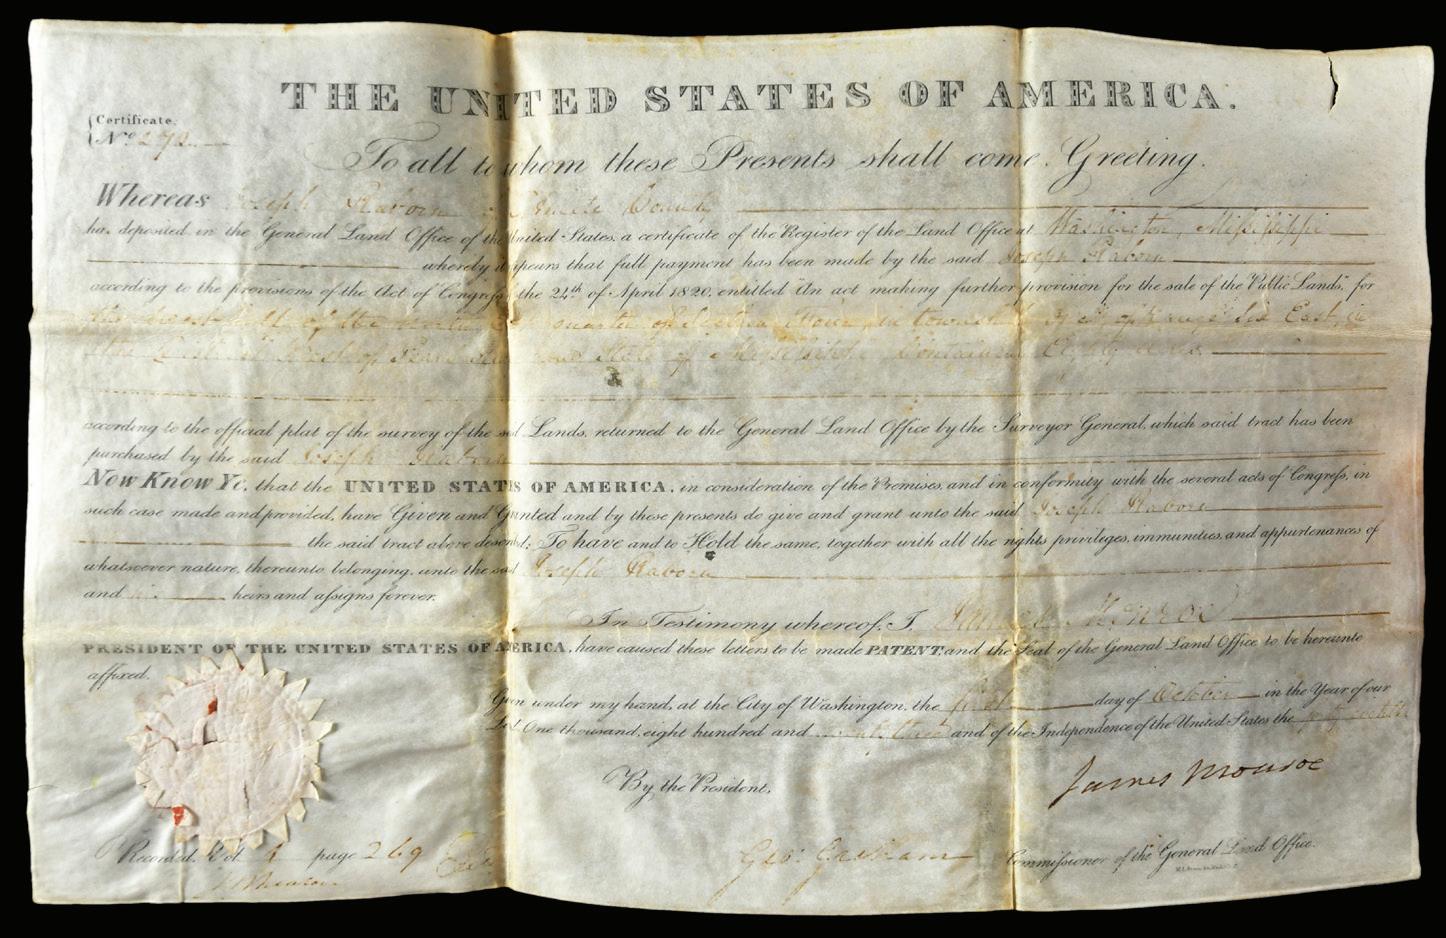 THE UNITED STATES OF AMERICA.
Certificate.
No. 272.
To all to whom these Presents shall come, Greeting.
Whereas Joseph Raborn Amite County
has deposited in the General Land Office of the United States, a certificate of the Register of the Land Office at Washington, Mississippi
whereby it appears that full payment has been made by the said Joseph Raborn
according to the provisions of the Act of Congress of the 24th of April 1820, entitled "An act making further provision for the sale of the Public Lands," for
the west half of the quarter of Section Four, in township of Range Six East, in
the District West of Pearl State of Mississippi Containing Eighty acres
according to the official plat of the survey of the said Lands, returned to the General Land Office by the Surveyor General, which said tract has been
purchased by the said Joseph Raborn
Now Know Ye, that the UNITED STATES OF AMERICA, in consideration of the Premises, and in conformity with the several acts of Congress, in
such case made and provided, have Given and Granted and by these presents do give and grant unto the said Joseph Raborn
the said tract above described; To have and to Hold the same, together with all the rights, privileges, immunities, and appurtenances of
whatsoever nature, thereunto belonging, unto the said Joseph Raborn
and heirs and assigns forever.
In Testimony whereof, I, James Monroe
PRESIDENT OF THE UNITED STATES OF AMERICA, have caused these letters to be made PATENT, and the Seal of the General Land Office to be hereunto
affixed.
Given under my hand, at the City of Washington, the first day of October in the Year of our
Lord One thousand, eight hundred and and of the Independence of the United States the forty
By the President,
James Monroe
Recorded, Vol. page 269
Geo: Graham Commissioner of the General Land Office.